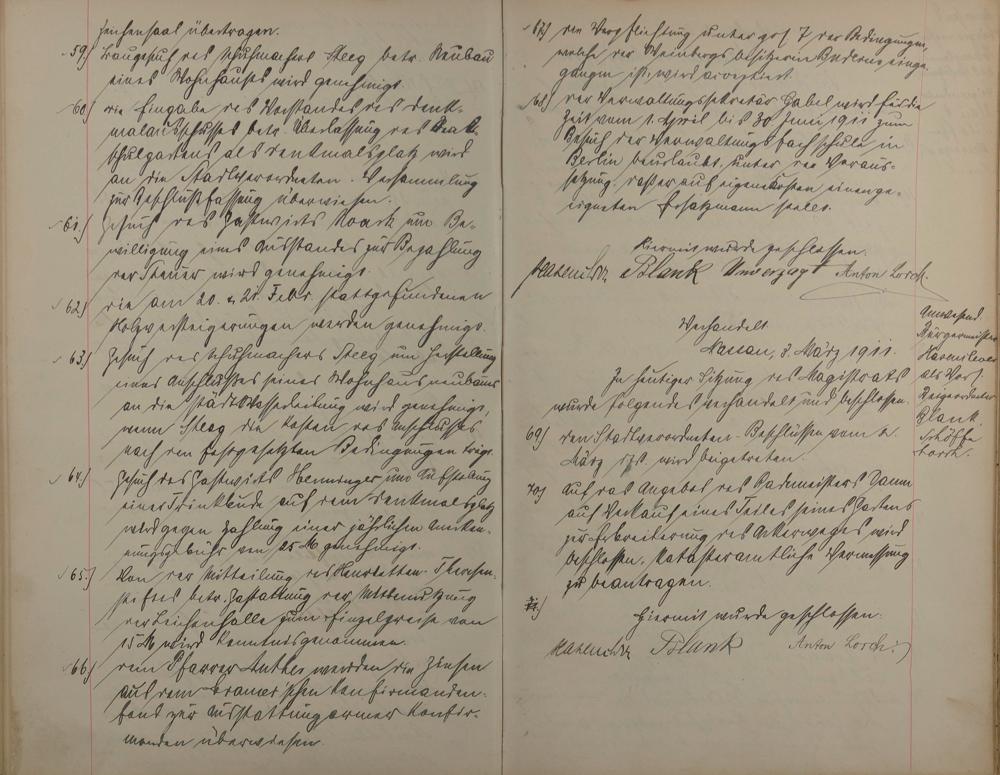 Zeichensaal übertragen.
59) Baugesuch des Schuhmachers Steeg betr. Neubau
eines Wohnhauses wird genehmigt.
60) die Eingabe des Vorstandes des Denk-
malausschusses betr. Überlassung des
Schulgartens als Denkmalsplatz wird
an die Stadtverordneten-Versammlung
zur Beschlußfassung überwiesen.
61.) Gesuch des Gastwirts Noack um Be-
willigung eines Ausstandes zur Bezahlung
der Steuer wird genehmigt.
62) die am 20. u. 21. Febr. stattgefundenen
Holzversteigerungen werden genehmigt.
63.) Gesuch des Schuhmachers Steeg um Herstellung
eines Anschlußes seines Wohnhausneubaues
an die städt. Wasserleitung wird genehmigt,
wenn Steeg die Kosten des Anschlusses
nach den festgesetzten Bedingungen trägt.
64.) Gesuch des Gastwirts Hermninger um Aufstellung
einer Trinkbude auf dem Denkmalsplatz
wird gegen Zahlung einer jährlichen Anerken-
nungsgebühr von 25 M genehmigt.
65.) Von der Mitteilung des Henrietten-Theresen-
stiftes betr. Gestattung der Mitbenutzung
der Leichenhalle zum Einzelpreise von
15 M wird Kenntnis genommen.
66) dem Pfarrer Luthes werden die Zinsen
aus dem Kramer'schen Konfirmanden-
fond zur Ausstattung armer Konfir-
manden überwiesen.
67) die Verpflichtung unter pos 7 der Bedingungen,
welche der Weinbergsbesitzerin einge-
gangen ist, wird acceptiert.
68) der Verwaltungssekretär Gabel wird für die
Zeit vom 1. April bis 30 Juni 1911 zum
Besuch der Verwaltungsfachschule in
Berlin beurlaubt, unter der Voraus-
setzung, daß er auf eigene Kosten einen ge-
eigneten Ersatzmann stellt.
Hiermit wurde geschlossen.
Hasenclever Blank Unverzagt Anton Lorch.
Verhandelt
Nassau, 8. März 1911.
Anwesend
Bürgermeister
Hasenclever
als Vors.
Beigeordneter
Blank
Schöffe
Lorch.
In heutiger Sitzung des Magistrats
wurde folgendes verhandelt und beschlossen.
69) den Stadtverordneten-Beschlüssen vom 2.
März ds. wird beigetreten.
70) Auf das Angebot des Bademeisters
auf Verkauf eines Teiles seines Gartens
zur Erbreiterung des Ackerweges wird
beschlossen, katasteramtliche Vermessung
zu beantragen.
71.)
Hiermit wurde geschlossen.
Hasenclever Blank Anton Lorch.